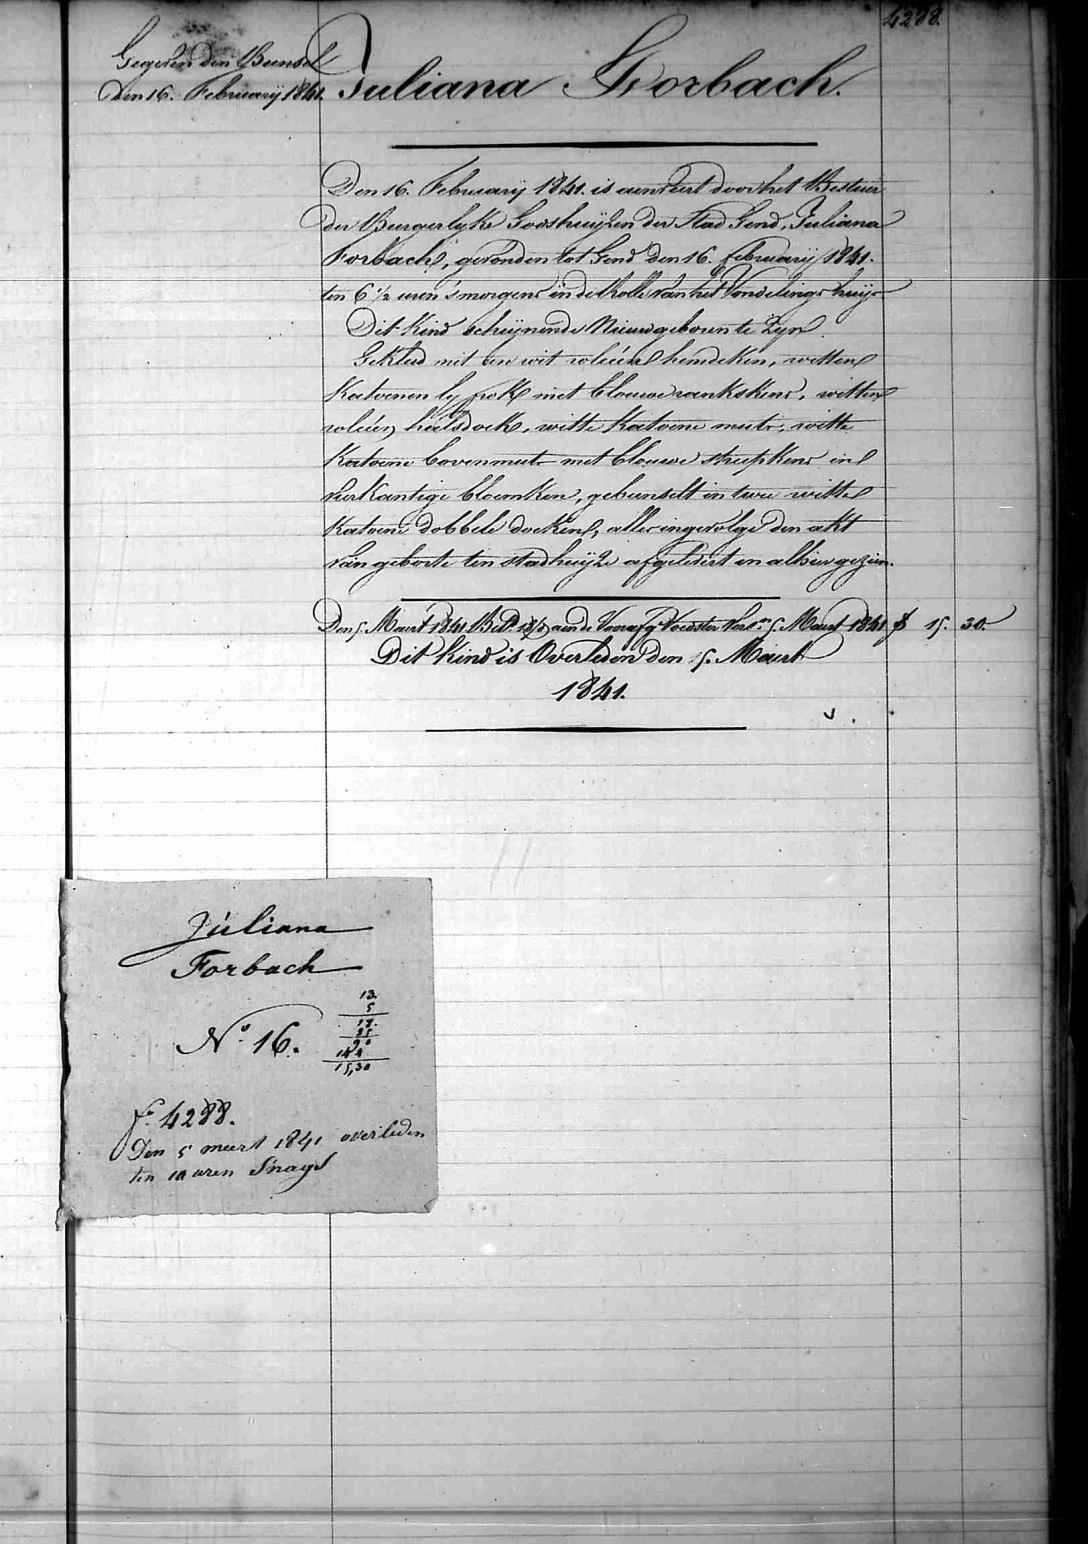 4288.
Gegeven den Bunsel
Den 16. February 1841.
Juliana Forbach.
Den 16. February 1841. is aenveert door het Bestuer
der Burgerlyke Godshuyzen der stad Gend, Juliana
Forbach, gevonden tot Gend den 16. february 1841.
ten 6 1/2 uren 's morgens in de Rolle van het Vondelings huys
Dit Kind schynende Nieuwgeboren te Zyn
Gekleed met een wit voliéen hemdeken, witten
Katoenen ly frok met blouwe rankskens, witten
voliéen halsdoek, witte Katoene muts, witte
Katoene bovenmuts met blouwe streepkens in
vierkantige bloemken, gebunselt in twee witte
Katoene dobbele doeken, alles ingevolge den akt
van geborte ten stadhuyze afgelevert en alhier gezien.
Den 5. Maert 1841 Bet. aen de Voedster 5. Maert 1841 f 15. 30.
Dit Kind is Overleden den 5. Maert
1841.
Juliana
Forbach
No. 16.
13.
5
17.
85
90
144
15,30
fo. 4288.
Den 5 meert 1841 overleden
ten 10 uren Snags